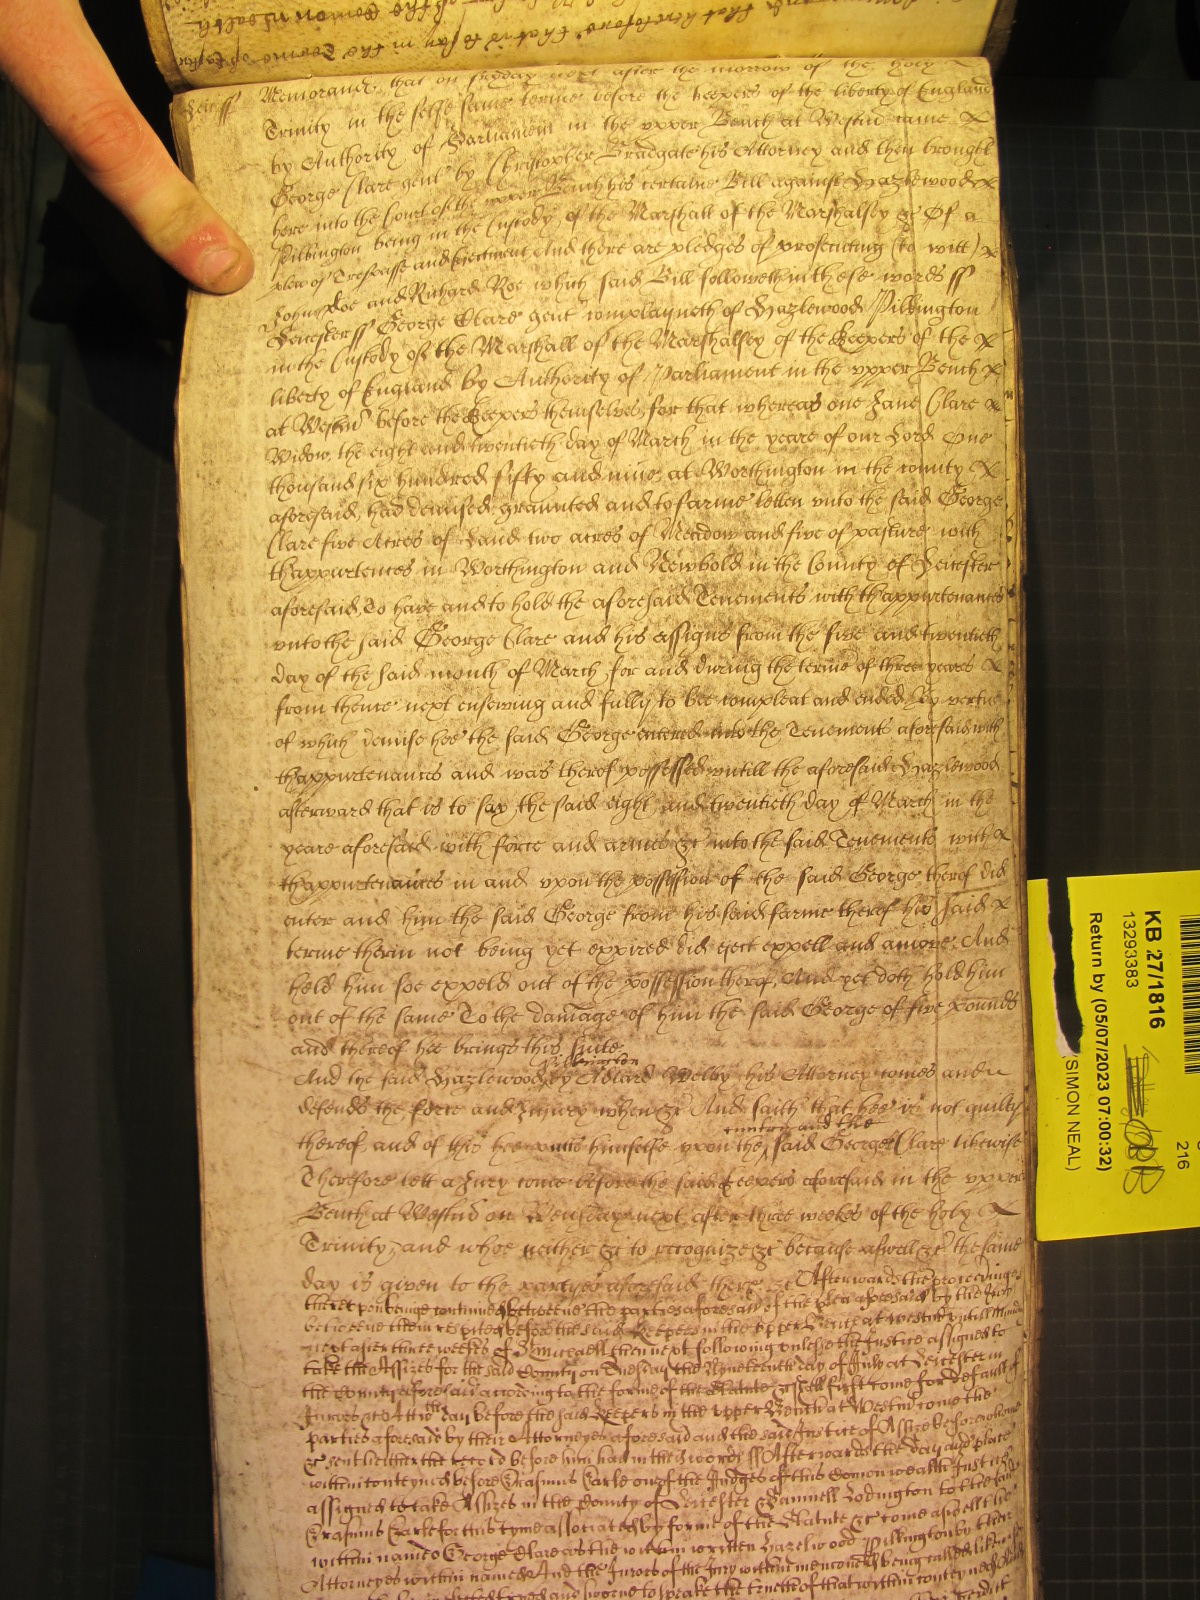 Leic ss Memorand that on fryday next after the morrow of the holy
Trinity in the selfe same terme before the keepers of the liberty of England
by Authority of Parliament in the upper Bench at Westm came
George Clare gent by Christopher Bradgate his Attorney and then brought
here into the Court of the upper Bench his certaine Bill against Hazlewood
Pilkington being in the Custody of the Marshall of the Marshalsey &c Of a
plea of Trespasse and Ejectment And there are pledges of prosecuting (to witt)
John Doe and Richard Roe which said Bill followeth in these words ss
Leicester ss George Clare gent complayneth of Hazlewood Pilkington
in the Custody of the Marshall of the Marshalsey of the Keepers of the
liberty of England by Authority of Parliament in the upper Bench
at Westm before the Keepers themselves for that whereas one Jane Clare
Widow the eight and twentieth day of March in the yeare of our Lord One
thousand six hundred fifty and nine at Worthington in the county
aforesaid had demised graunted and to farme letten unto the said George
Clare five Acres of Land two acres of Meadow and five of pasture with
thappurtences in Worthington and Newbold in the County of Leicester
aforesaid To have and to hold the aforesaid Tenements with thappurtenances
unto the said George Clare and his assigns from the five and twentieth
day of the said month of March for and during the terme of three yeares
from thence next ensewing and fully to bee compleat and ended By vertue
of which demise hee the said George entered into the Tenements aforesaid with
thappurtenances and was therof possessed untill the aforesaid Hazlewood
afterward that is to say the said eight and twentieth day of March in the
yeare aforesaid with force and armes &c into the said Tenements with
thappurtenances in and upon the possession of the said George therof did
enter and him the said George from his said farme therof his said
terme therin not being yet expired did eject expell and amove And
held him soe expeld out of the possession therof And yet doth hold him
out of the same To the damage of him the said George of five pounds
and thereof hee brings this suite
Pilkington
And the said Hazlewood by Adlard Welby his Attorney comes and
defends the force and Injury when &c And saith that hee is not guilty
cuntry and the
therof and of this hee putts himselfe upon the said George Clare likewise
Therefore lett a Jury come before the said Keepers aforesaid in the upper
Bench at Westm on Wensday next after three weekes of the holy
Trinity and whoe neither &c to recognize &c because aswell &c the same
day is given to the partyes aforesaid there &c Afterwards the proceedings
thereupon beinge continued betweene the parties aforesaid of the plea aforesaid by the Jury
betweene them respited before the said Keepers in the upper Bench at Westm untill
next after three weekes of St Michaell then next following unlesse the Justice assigned to
take the Assizes for the said County on Tuesday the Nyneteenth day of July at Leicester in
the County aforesaid according to the forme of the Statute &c shall first come for default of
Jurors &c Att the day before the said Keepers in the upper Bench at Westm come the
parties aforesaid by their Attorneyes aforesaid and the said Justice of Assize before whome
&c sent hither the record before him had in these words ss Afterwards the day and place
within conteyned before Erasmus Earle one of the Judges of this Comonwealth Justice
assigned to take Assizes in the County of Leicester Sammell Lodington to the said
Erasmus Earle for this tyme associated by forme of the Statute &c come aswell the
within named George Clare as the within written Hazelwood Pilkington by their
Attorneyes within named And the Jurors of the Jury within menconed being called likewise
and sworne to speake the trueth of that within conteyned
KB 27/1816
13293383
Return by (05/07/2023 07:00:32)
(SIMON NEAL)
216